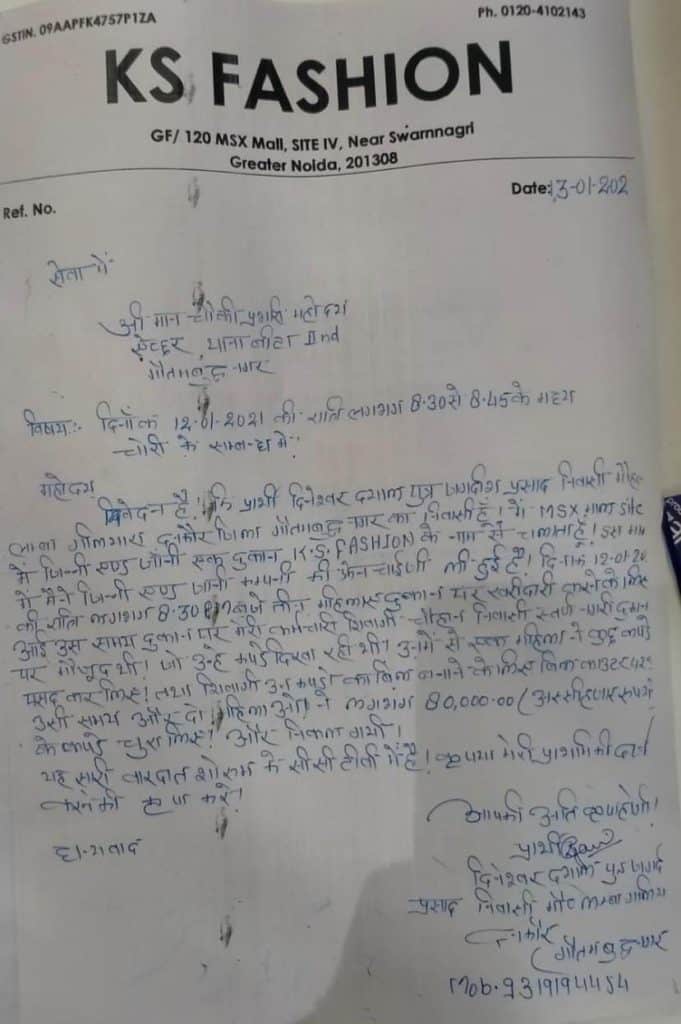 GSTIN. 09AAPFK4757P1ZA
Ph. 0120-4102143
KS FASHION
GF/ 120 MSX Mall, SITE IV, Near Swarnnagri
Greater Noida, 201308
Ref. No.
Date: 13-01-202
सेवा में
श्री मान चौकी प्रभारी महोदय
थाना बीटा IInd
गौतमबुद्ध नगर
विषय:- दिनाँक 12-01-2021 की रात्रि लगभग 8.30 से 8.45 के मध्य
चोरी के सम्बन्ध में
महोदय
निवेदन है! कि प्रार्थी दिनेश्वर दयाल पुत्र जगदीश प्रसाद निवासी
दनकौर जिला गौतमबुद्ध नगर का निवासी हूँ! मैं MSX माल Site
में जिनी एण्ड जोनी एक दुकान K.S. FASHION के नाम से चलाता हूँ! इस
में मैने जिनी एण्ड जोनी कम्पनी की फ्रेन्चाईजी ली हुई है! दिनांक 12-01-20
की रात्रि लगभग 8.30 बजे तीन महिलाए दुकान पर खरीदारी करने के लिए
आई उस समय दुकान पर मेरी कर्मचारी शिवांगी चौहान निवासी
पर मौजूद थी! जो उन्हे कपड़े दिखा रही थी! उनमें से एक महिला ने कुछ कपड़े
पसंद कर लिए! तथा शिवांगी उन कपड़ो का बिल बनाने के लिए बिल काउंटर
उसी समय और दो महिलाओं ने लगभग 80,000.00 (अस्सी हजार रूपये
के कपड़े चुरा लिए! और निकल गयी।
यह सारी वारदात शोरूम के सीसीटीवी में है! कृपया मेरी प्राथमिकी दर्ज
करने की कृपा करें!
आपकी अति कृपा होगी!
धन्यवाद
प्रार्थी
दिनेश्वर दयाल पुत्र
प्रसाद निवासी
दनकौर
गौतमबुद्ध नगर
Mob. 9319194454